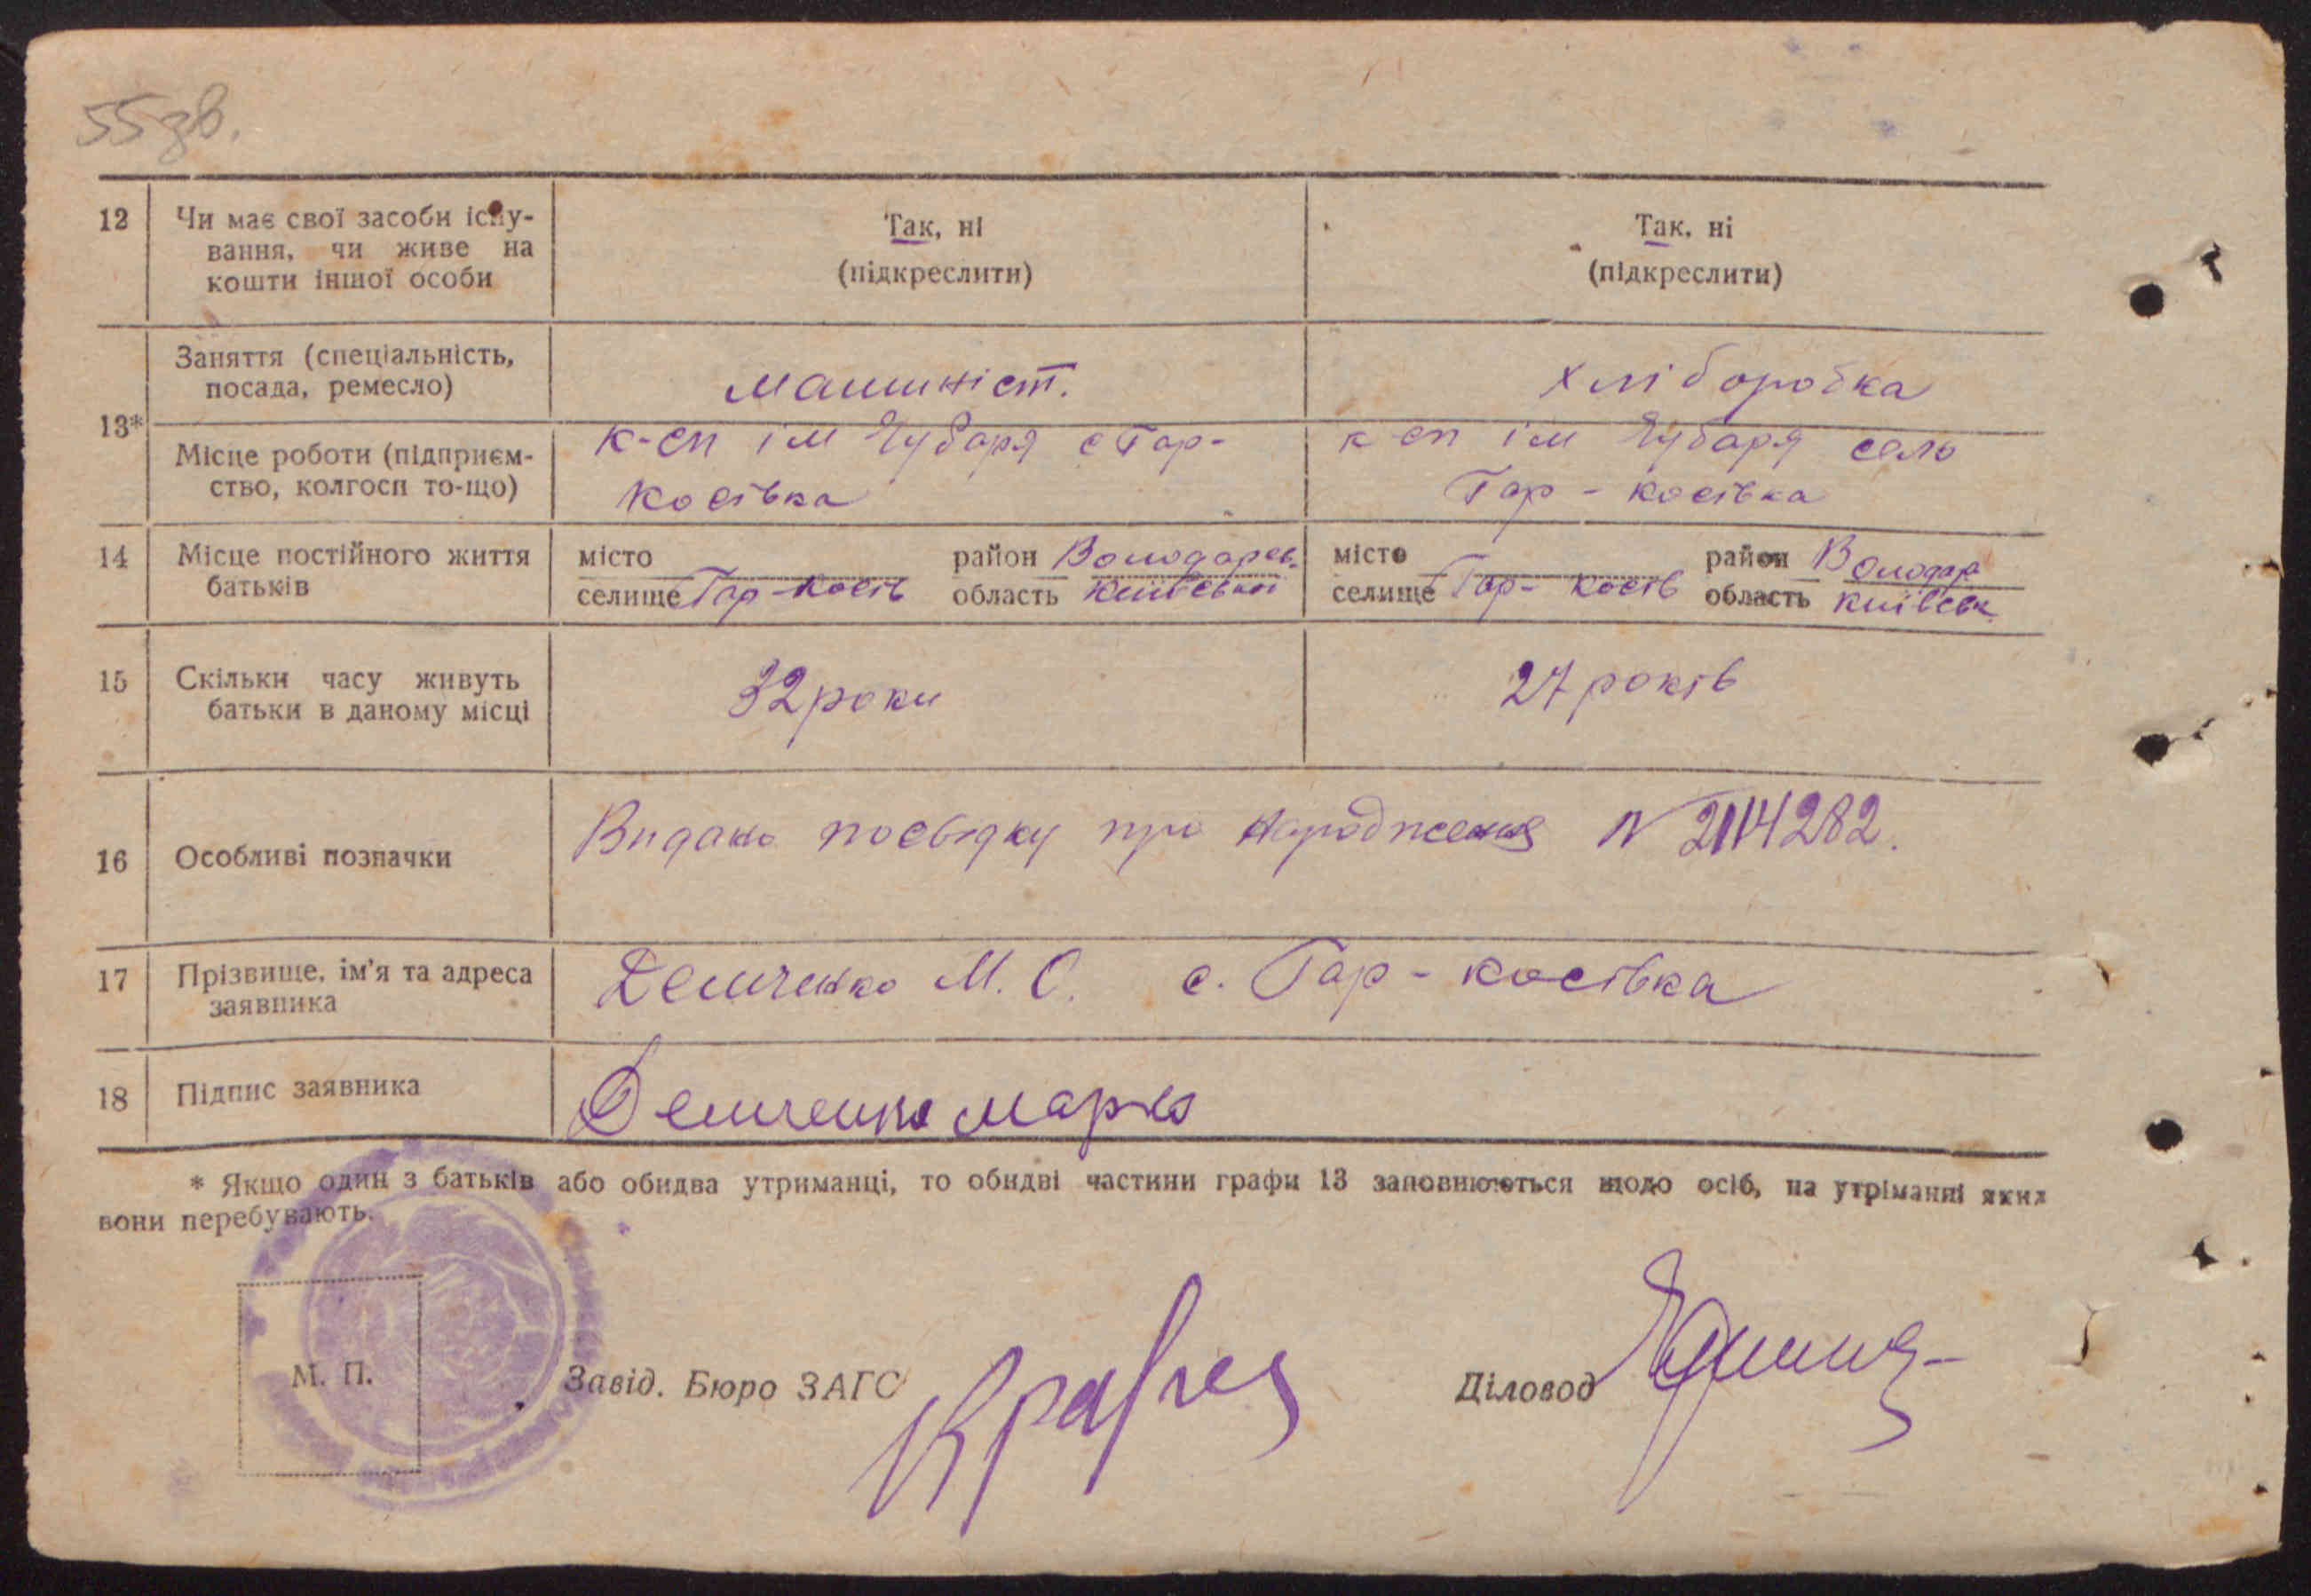 55зв.
12
Чи має свої засоби існу-
вання, чи живе на
кошти іншої особи
Так, ні
(підкреслити)
Так, ні
(підкреслити)
13*
Заняття (спеціальність,
посада, ремесло)
машиніст.
хліборобка
Місце роботи (підприєм-
ство, колгосп то-що)
к-сп ім Чубаря с Тар-
косівка
к-сп ім Чубаря село
Тар-косівка
14
Місце постійного життя
батьків
місто
селище Тар-косів
район Володарсь.
область Київської
місто
селище Тар-косів
район Володар
область київськ
15
Скільки часу живуть
батьки в даному місці
32 роки
27 років
16
Особливі позначки
Видано посвідку про народження N 2114282.
17
Прізвище, ім'я та адреса
заявника
Демченко М. С. с. Тар-косівка
18
Підпис заявника
Демченко Марко
* Якщо один з батьків або обидва утриманці, то обидві частини графи 13 заповнюються щодо осіб, на утріманні яких
вони перебувають.
М. П.
Завід. Бюро ЗАГС
Діловод